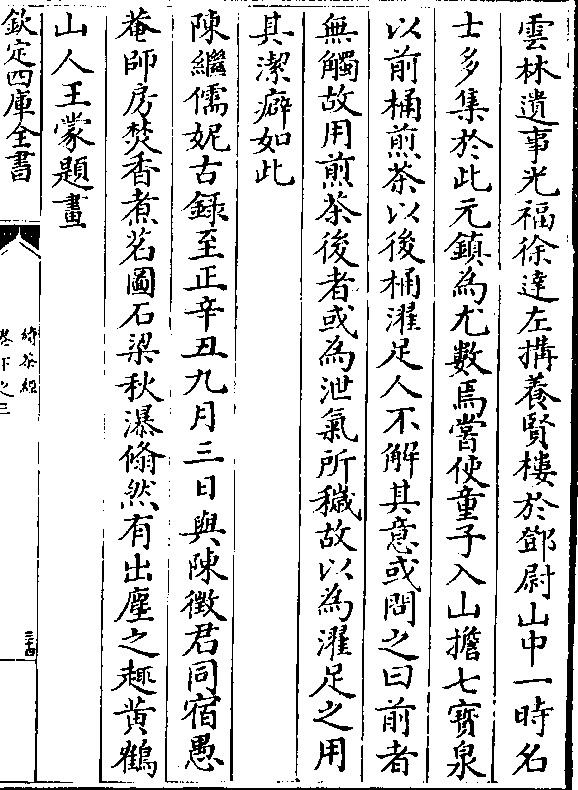 雲林遺事光福徐達左搆養賢樓於鄧尉山中一時名
士多集於此元鎮為尤數焉嘗使童子入山擔七寳泉
以前桶煎茶以後桶濯足人不解其意或問之曰前者
無觸故用煎茶後者或為泄氣所穢故以為濯足之用
其潔癖如此
陳繼儒妮古録至正辛丑九月三日與陳徴君同宿愚
菴師房焚香煮茗圖石梁秋瀑翛然有出塵之趣黄鶴
山人王蒙題畫
欽定四庫全書
續茶經
卷下之三
三十四